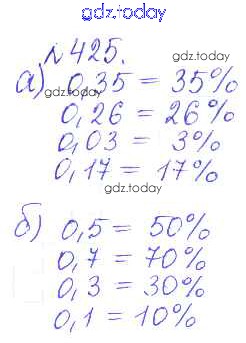 gdz.today
№425.
gdz.today
а) 0,35 = 35%
0,26 = 26%
0,03 = 3%
0,17 = 17%
gdz.today
б) 0,5 = 50%
0,7 = 70%
0,3 = 30%
0,1 = 10%
gdz.today